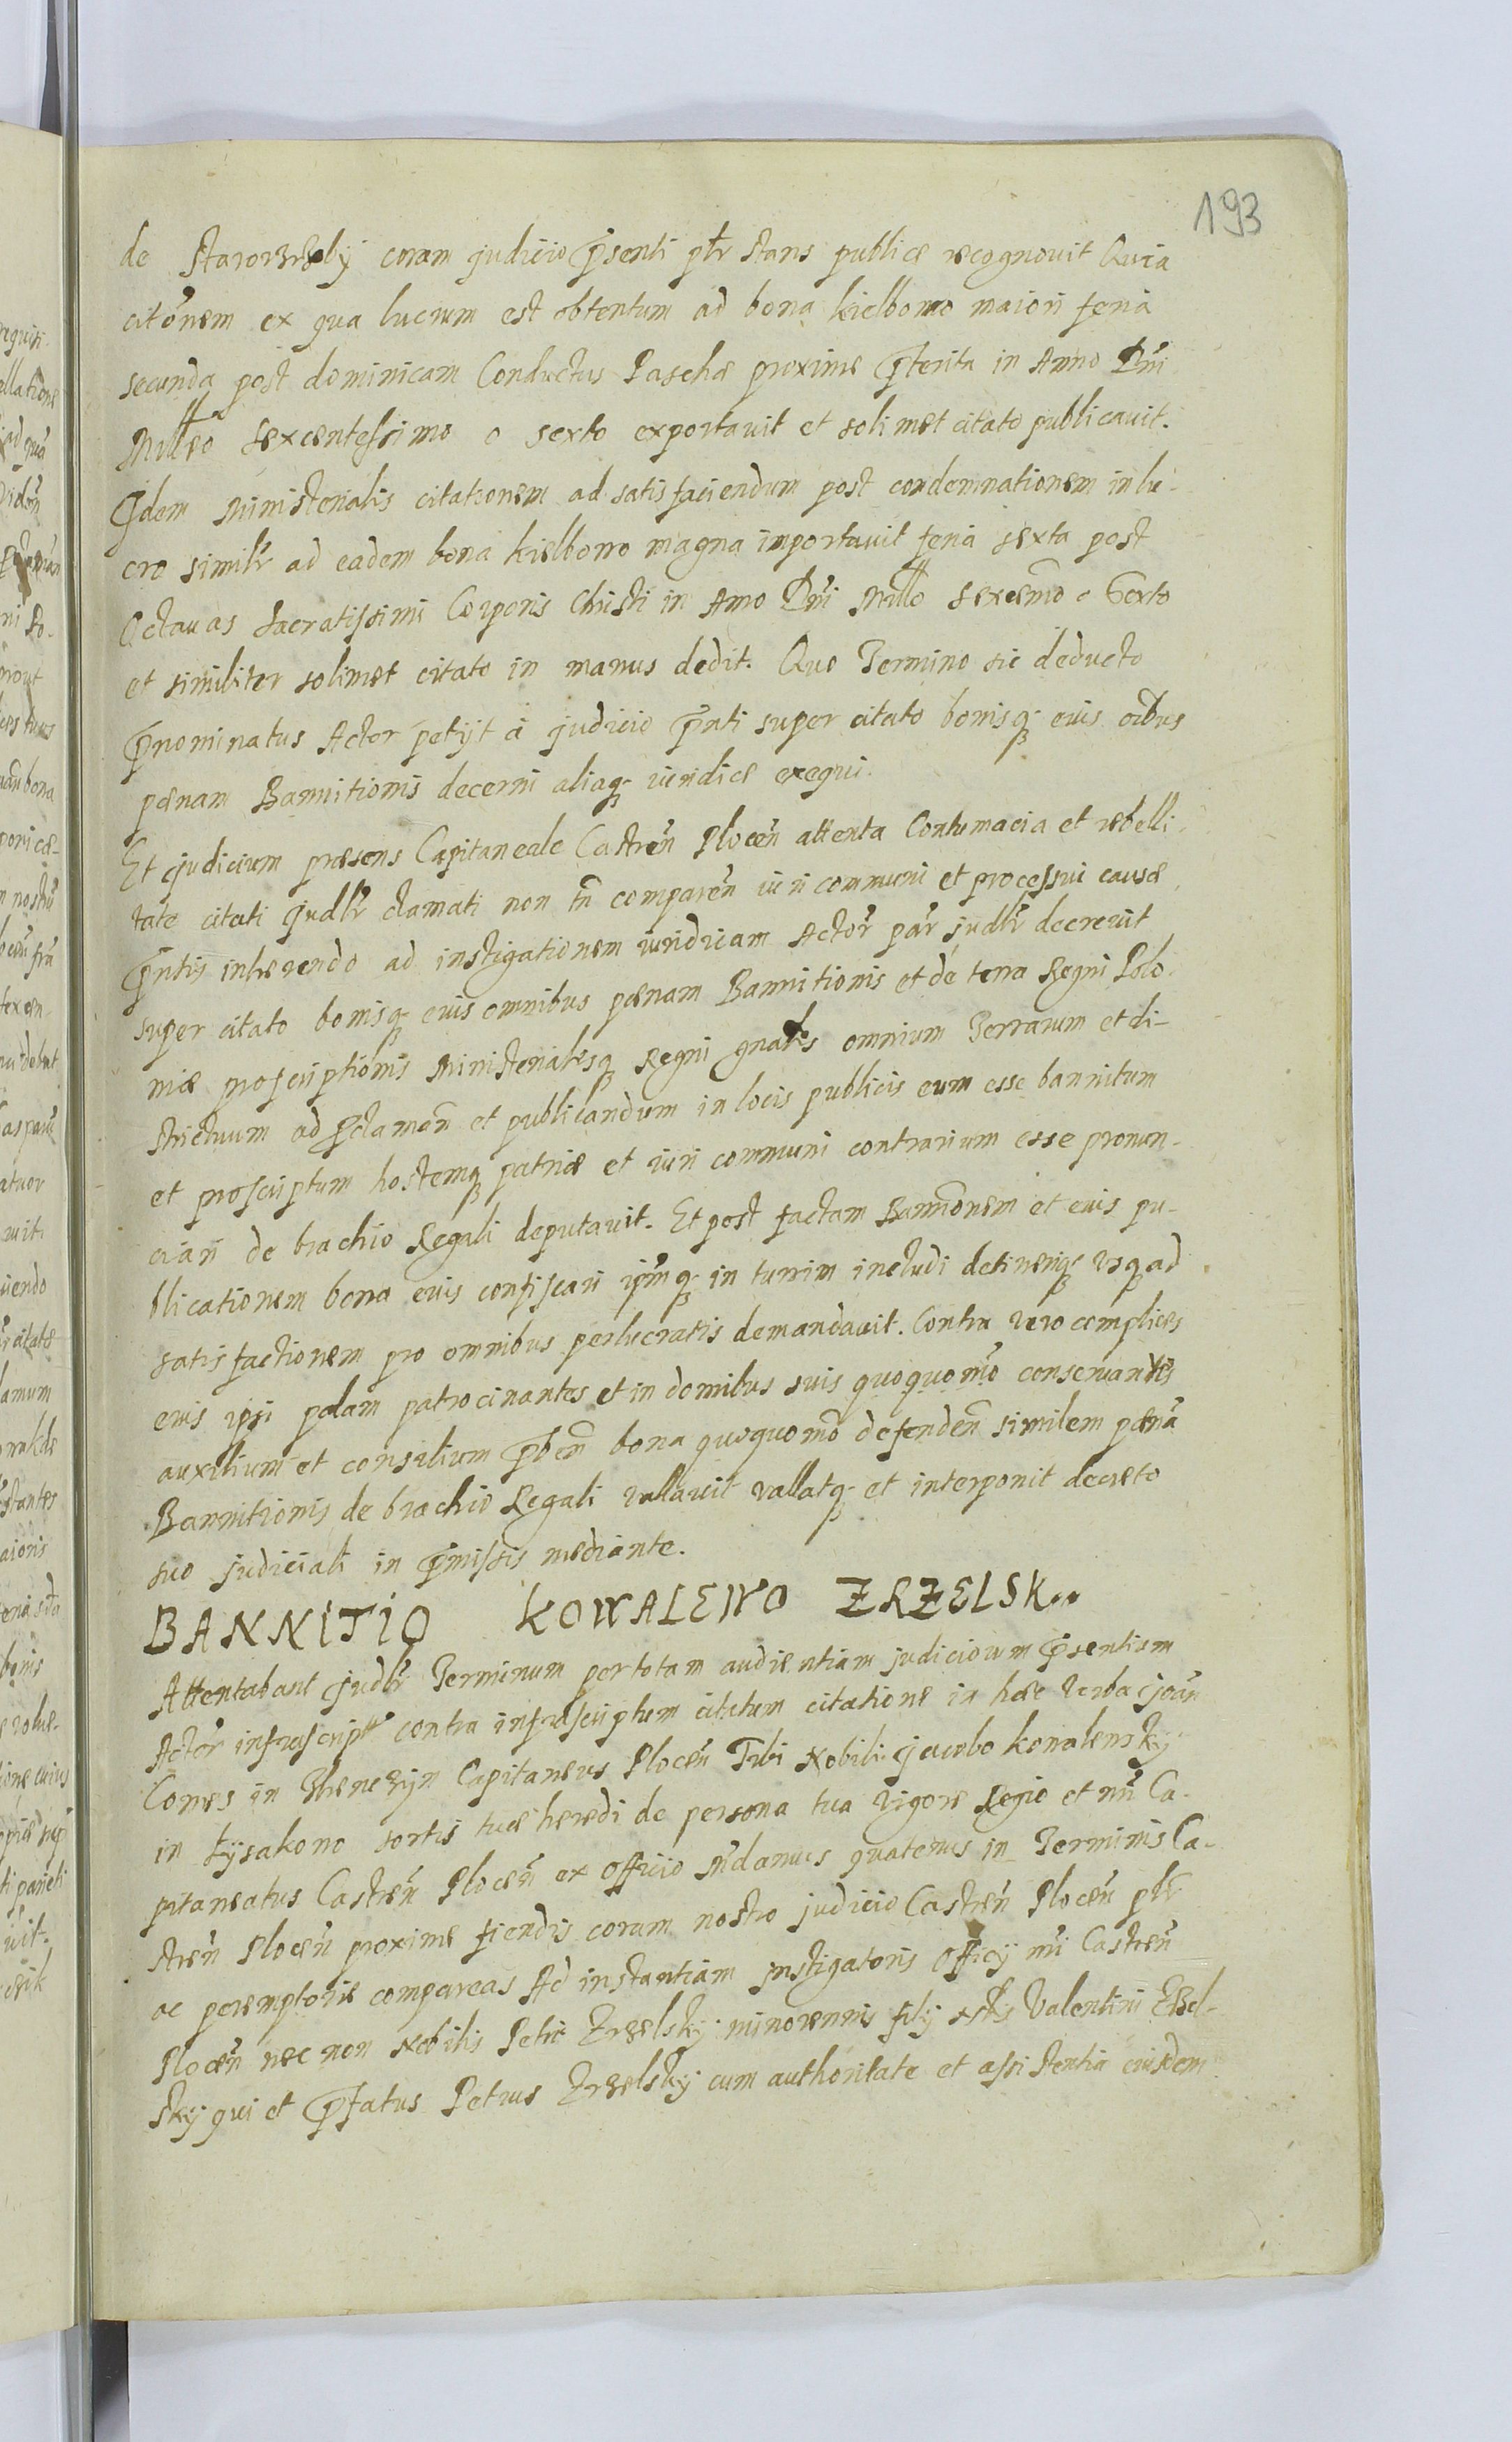 193
de Staroźrzeby coram judicio p̄senti pl̄r stans publice recognovit Quia
citōnem ex qua lucrum est obtentum ad bona kielbowo maiori feria
secunda post dominicam Conductus Paschæ proxime p̄terita in Anno Dn̄i
Milleo sexcentessimo o sexto exportavit et solimet citato publicavit.
Idem Ministerialis citationem ad satisfaciendum post condemnationem in lu-
cro simil̄r ad eadem bona kielbowo magna importavit feria sexta post
Octavas Sacratissimi Corporis Christi in Anno Dn̄i Millo sexcenmo o Sexto
et similiter solimet citato in manus dedit. Quo Termino sic deducto
p̄nominatus Actor petyt a judicio p̄nti super citato bonisq̨ eius oībus
pænam Bannitionis decerni aliaq̨ iuridice exequi.
Et judicium præsens Capitaneale Castren̄ Plocen̄ attenta Contumacia et rebelli-
tate citati judl̄r clamati non tn̄ comparen̄ iuri communi et processui causæ
p̄ntis inherendo ad instigationem iuridicam Actor̄ par̄ judl̄r decrevit
super citato bonisq̨ eius omnibus pænam Bannitionis et de terra Regni Polo-
niæ proscriptionis Ministerialesq̨ Regni gnales omnium Terrarum et di-
strictuum ad p̄clamān et publicandum in locis publicis eum esse bannitum
et proscriptum hostemq̨ patriæ et iuri communi contrarium esse pronun-
ciari de brachio Regali deputavit. Et post factam Bannōnem et eius pu-
blicationem bona eius confiscari ipm̄q̨ in turrim includi detineriq̨ usq̨ ad
satisfactionem pro omnibus perlucratis demandavit. Contra vero complices
eius ipsi palam patrocinantes et in domibus suis quoquomō conservantes
auxilium et consilium p̄ben̄ bona quoquomō defenden̄ similem pænā
Bannitionis de brachio Regali vallavit vallatq̨ et interponit decreto
suo judiciali in p̄missis mediante.
BANNITIO KOWALEWO ZRZELSK..
Attentabant judl̄r Terminum per totam audientiam judiciorum p̄sentium
Actor̄ infrascript contra infrascriptum citatum citatione in hæc verba Joan̄
Comes in Capitaneus Plocen̄ Tibi Nobili Jacobo kowalewsky
in Łysakowo sortis tuæ heredi de persona tua vigore Regio et nr̄i Ca-
pitaneatus Castren̄ Plocen̄ ex officio mn̄damus quatenus in Terminis Ca-
stren̄ Plocen̄ proxime fiendis coram nostro judicio Castren̄ Plocen̄ pl̄r
ac peremptorie compareas Ad instantiam Instigatoris Officij nr̄i Castren̄
Plocen̄ nec non Nobilis Petri Zrzelsky minorennis filij Valentini Zrzel-
sky qui et p̄fatus Petrus Zrzelsky cum authoritate et assistentia eiusdem